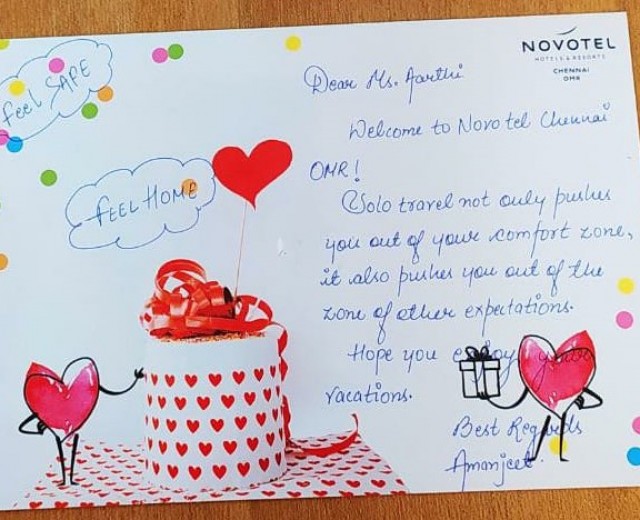 Feel SAFE
FEEL HOME
NOVOTEL
HOTELS & RESORTS
CHENNAI
OMR
Dear Ms. Aarthi
Welcome to Novotel Chennai
OMR!
Solo travel not only pushes
you out of your comfort zone,
it also pushes you out of the
zone of other expectations.
Hope you enjoy your
vacations.
Best Regards
Amanjeet.